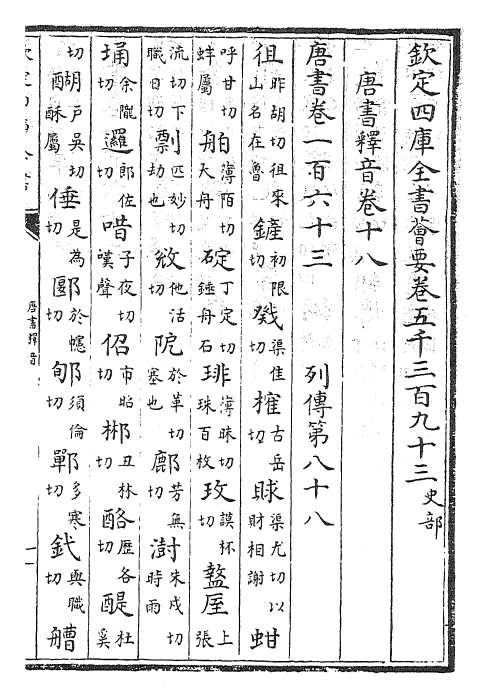 欽定四庫全書薈要卷五千三百九十三史部
唐書釋音卷十八
唐書卷一百六十三 列傳第八十八
徂昨胡切徂來山名在魯鏟初限切戣渠隹切榷古岳切賕渠尤切以財相謝蚶
呼甘切蚌屬舶薄陌切大舟碇丁定切錘舟石琲薄昧切珠百枚玫謨杯切盩厔上張
流切下職日切剽匹妙切劫也敓他活切阨於革切塞也鄜芳無切澍朱戍切時雨
埇余隴切邏郎佐切唶子夜切嘆聲佋市昭切郴丑林切酪歷各切醍杜奚
切醐戶吳切酥屬倕是為切郾於幰切郇須倫切鄲多寒切釴與職切艚
唐書釋音
一